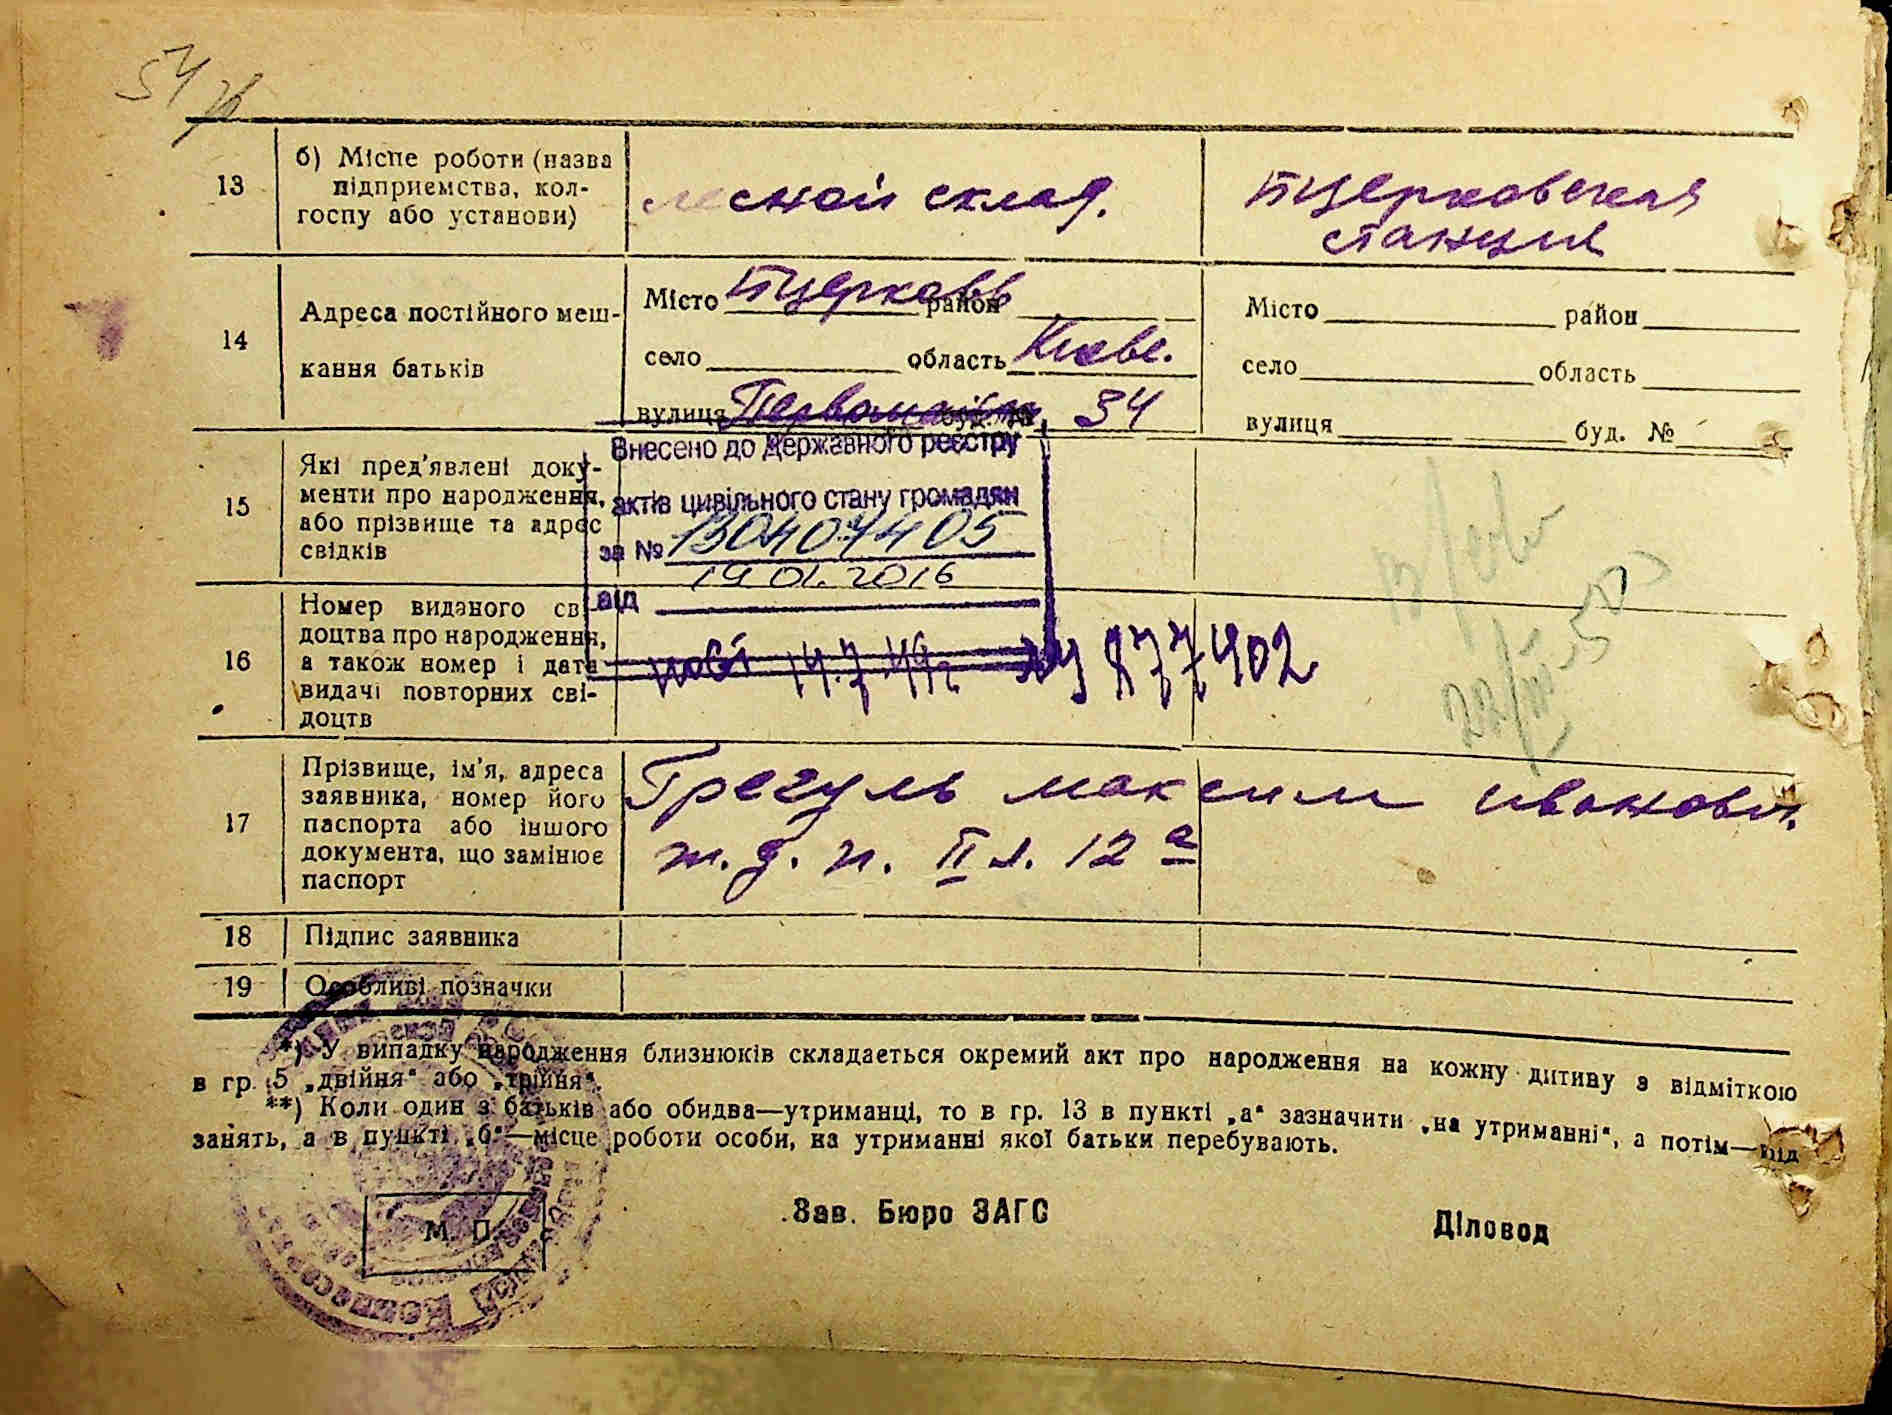 54
13
б) Місце роботи (назва
підприємства, кол-
госпу або установи)
лесной склад.
Бцерковская
станция
14
Адреса постійного меш-
кання батьків
Місто Бцерковь район
село область Киевс.
вулиця Первомайск буд. № 34
Місто район
село область
вулиця буд. №
15
Які пред'явлені доку-
менти про народження,
або прізвище та адрес
свідків
Внесено до Державного реєстру
актів цивільного стану громадян
за № 130407405
19 01. 2016
від
16
Номер виданого сві-
доцтва про народження,
а також номер і дата
видачі повторних сві-
доцтв
14.7 49г 877402
22/III-50
17
Прізвище, ім'я, адреса
заявника, номер його
паспорта або іншого
документа, що замінює
паспорт
Грегуль максим иванович.
ж.д.п. II л. 12 а
18
Підпис заявника
19
Особливі позначки
*) У випадку народження близнюків складається окремий акт про народження на кожну дитину з відміткою
в гр. 5 „двійня“ або „трійня“.
**) Коли один з батьків або обидва—утриманці, то в гр. 13 в пункті „а“ зазначити „на утриманні“, а потім—від
занять, а в пункті „б“—місце роботи особи, на утриманні якої батьки перебувають.
М. П.
Зав. Бюро ЗАГС
Діловод